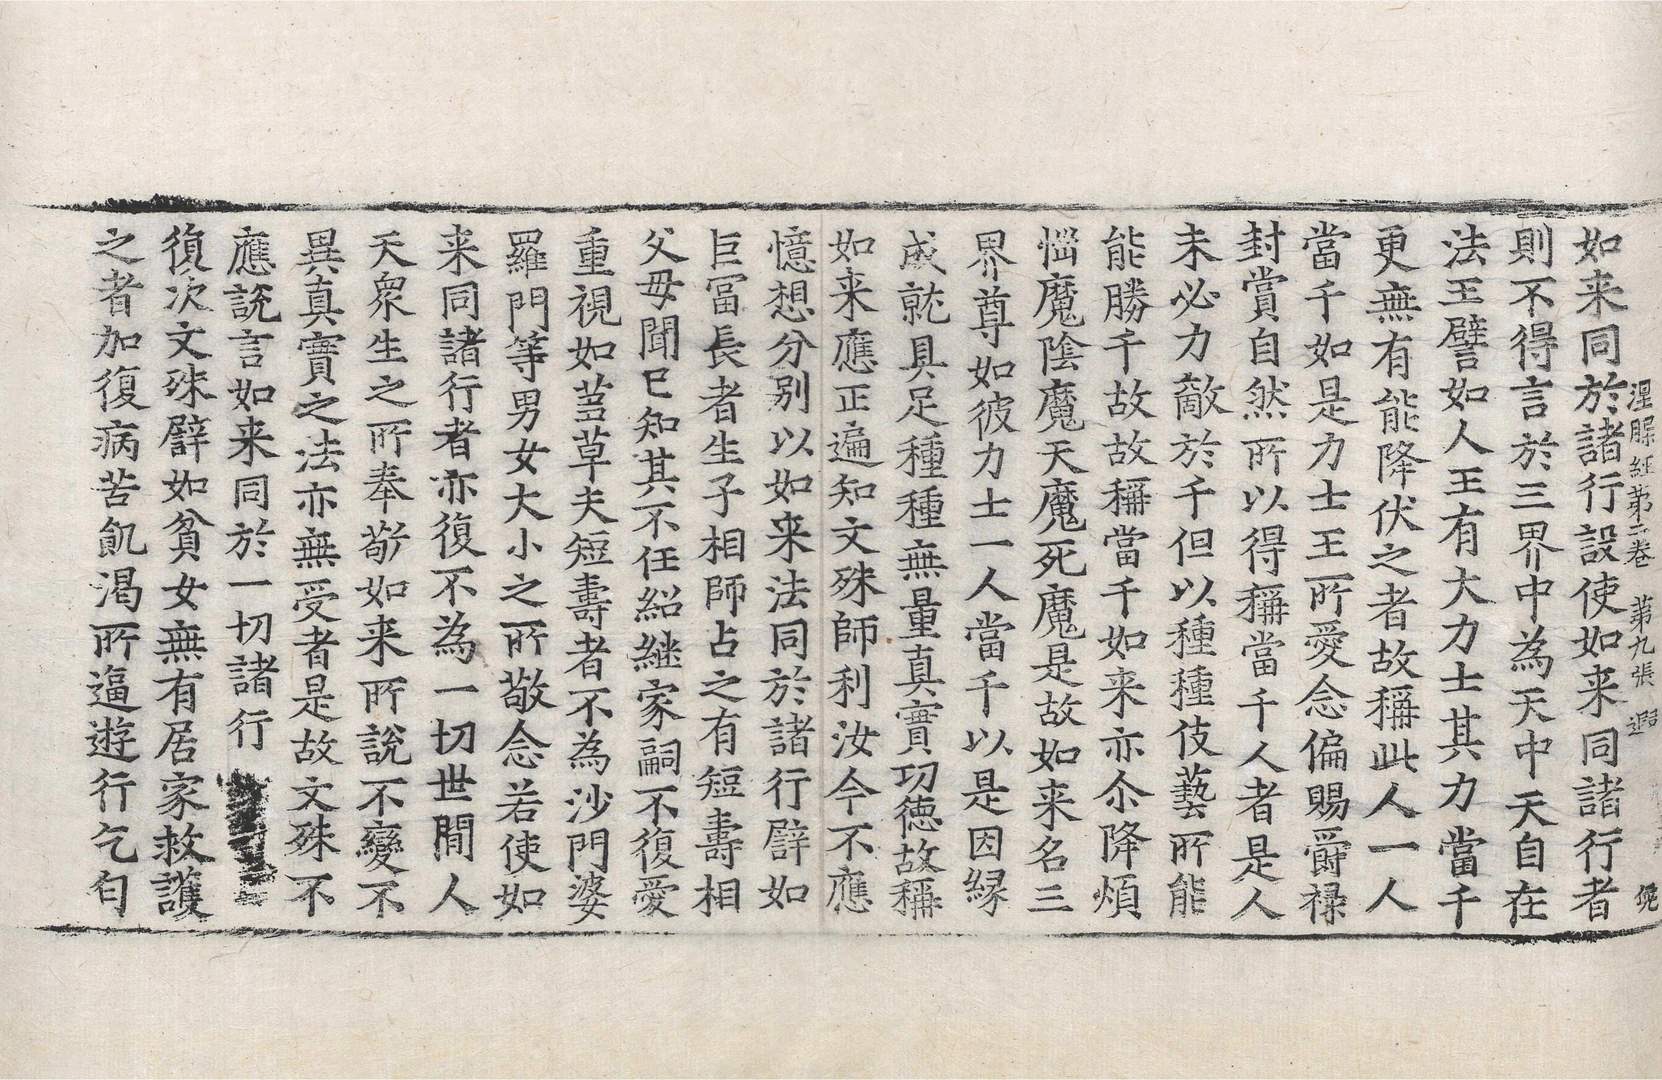 涅脲経第二卷　第九張　遐
如来同於諸行設使如来同諸行者
則不得言於三界中為天中天自在
法王譬如人王有大力士其力當千
更無有能降伏之者故稱此人一人
當千如是力士王所愛念偏賜爵祿
封賞自然所以得稱當千人者是人
未必力敵於千但以種種伎藝所能
能勝千故故稱當千如来亦尒降煩
惱魔陰魔天魔死魔是故如来名三
界尊如彼力士一人當千以是因縁
成就具足種種無量真實功徳故稱
如来應正遍知文殊師利汝今不應
憶想分别以如来法同於諸行譬如
巨冨長者生子相師占之有短壽相
父母聞已知其不任紹継家嗣不復愛
重視如蒭草夫短壽者不為沙門婆
羅門等男女大小之所敬念若使如
来同諸行者亦復不為一切世間人
天衆生之所奉敬如来所說不變不
異真實之法亦無受者是故文殊不
應說言如来同於一切諸行
復次文殊譬如貧女無有居家救護
之者加復病苦飢渴所逼遊行乞匄